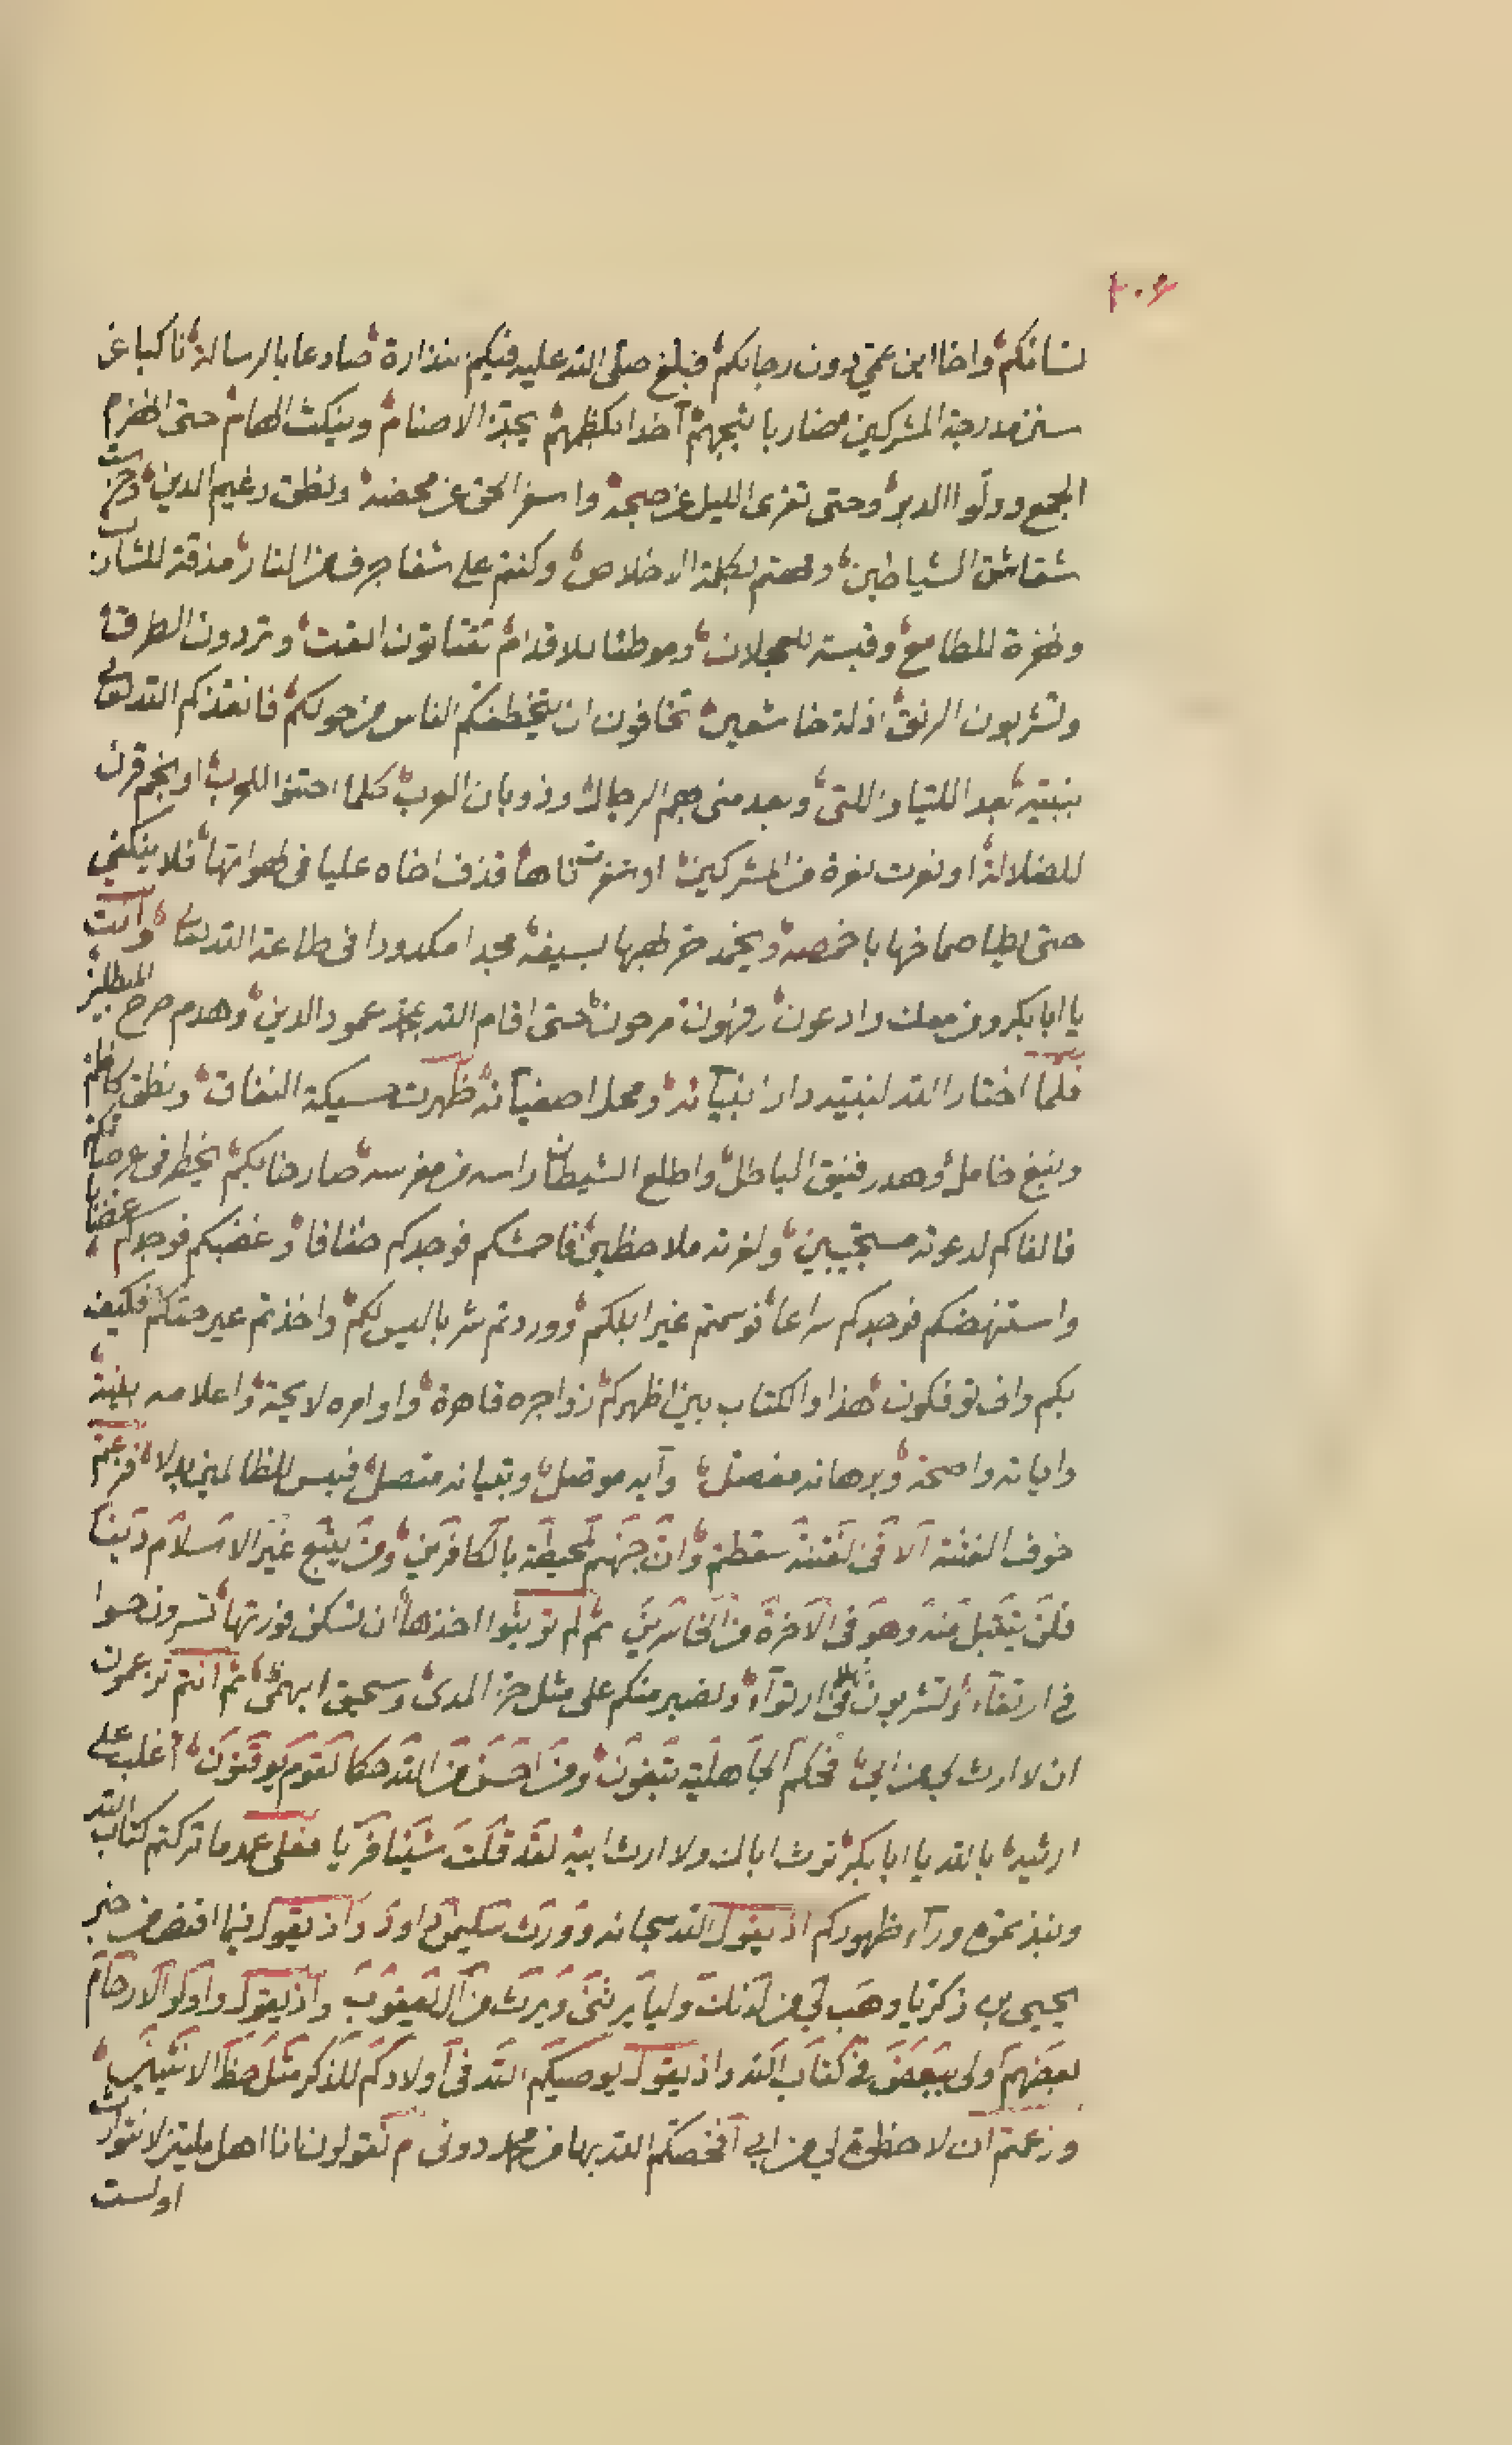 ١٠٤
نسائكم واخا ابن عمي دون رجالكم فبلغ صلى الله عليه فيكم بنذارة صادعا بالرسالة ناكبا عن
سنن مدرجة المشركين مضاربا ثبجهم آخذا بكظمهم يجذ الاصنام وينكث الهام حتى انهزم
الجمع وولّوا الدبر وحتى تفرى الليل عن صبحه واسفر الحق عن محضه ونطق زعيم الدين وخرست
شقاشق الشياطين وفهتم بكلمة الاخلاص وكنتم على شفا جرف من النار مذقة للشارب
ونهزة للطامع وقبسة للعجلان وموطئا للاقدام تقتاتون القت وتردون الطرق
وتشربون الرنق اذلة خاشعين تخافون ان يتخطفكم الناس من حولكم فانقذكم الله تعالى
بنبيّه بعد اللتيا واللتي وبعد منى بهم الرجال وذوبان العرب كلما احشوا للحرب او نجم قرن
للضلالة او نعرت نعرة من المشركين او فغرت فاها قذف اخاه عليا في لهواتها فلا ينكفي
حتى يطا صماخها باخمصه ويخمد حر لهبها بسيفه مجدا مكدودا في طاعة الله تعالى وانت
يا ابا بكر ومن معك وادعون رفهون فرحون حتى اقام الله بمحمد عمود الدين وهدم صرح المبطلين
فلما اختار الله لنبيّه دار انبيائه ومحل اصفيائه ظهرت حسيكة النفاق ونطق كاظم
ونبغ خامل وهدر فنيق الباطل واطلع الشيطان راسه من مغرسه صارخا بكم يخطر في عرصاتكم
فالفاكم لدعوته مستجيبين ولغرته ملاحظين فاحمشكم فوجدكم خفافا وغضبكم فوجدكم غضابا
واستنهضكم فوجدكم سراعا فوسمتم غير ابلكم ووردتم شربا ليس لكم واخذتم غير حقكم فكيف
بكم وانى توفكون هذا والكتاب بين اظهركم زواجره قاهرة واوامره لايحة واعلامه بينة
واياته واضحة وبرهانه مفصل وآيه موصل وتبيانه متصل فبيس للظالمين بدلا فزعمتم
خوف الفتنة الا في الفتنة سقطتم وان جهنم لمحيطة بالكافرين ومن يبتغ غير الاسلام دينا
فلن يتقبل منه وهو في الآخرة من الخاسرين ثم لم تريثوا اخذها ان تسكن فورتها تسرون حسوا
في ارتغاء وتشربون في ارتواء ونصبر منكم على مثل حز المدى وسحيق ابهمى ثم انتم تزعمون
ان لا ارث لي من ابي افحكم الجاهلية تبغون ومن احسن من الله حكما لقوم يوقنون أغلب على
ارثيه بالله يا ابا بكر ترث اباك ولا ارث ابيه لقد قلت شيئا فريا فعلى عمد ما تركتم كتاب الله
ونبذتموه ورآء ظهوركم اذ يقول الله سبحانه وورث سليمان داود واذ يقول فيما اقتص من خبر
يحيى بن زكريا وهب لي من لدنك وليا يرثني ويرث من آل يعقوب واذ يقول واولو الارحام
بعضهم اولى ببعض في كتاب الله واذ يقول يوصيكم الله في اولادكم للذكر مثل حظ الانثيين
وزعمتم ان لا حظوة لي من ابي أفخصكم الله بها من محمد دوني ام تقولون انا اهل ملتين لا نتوارث
اولست